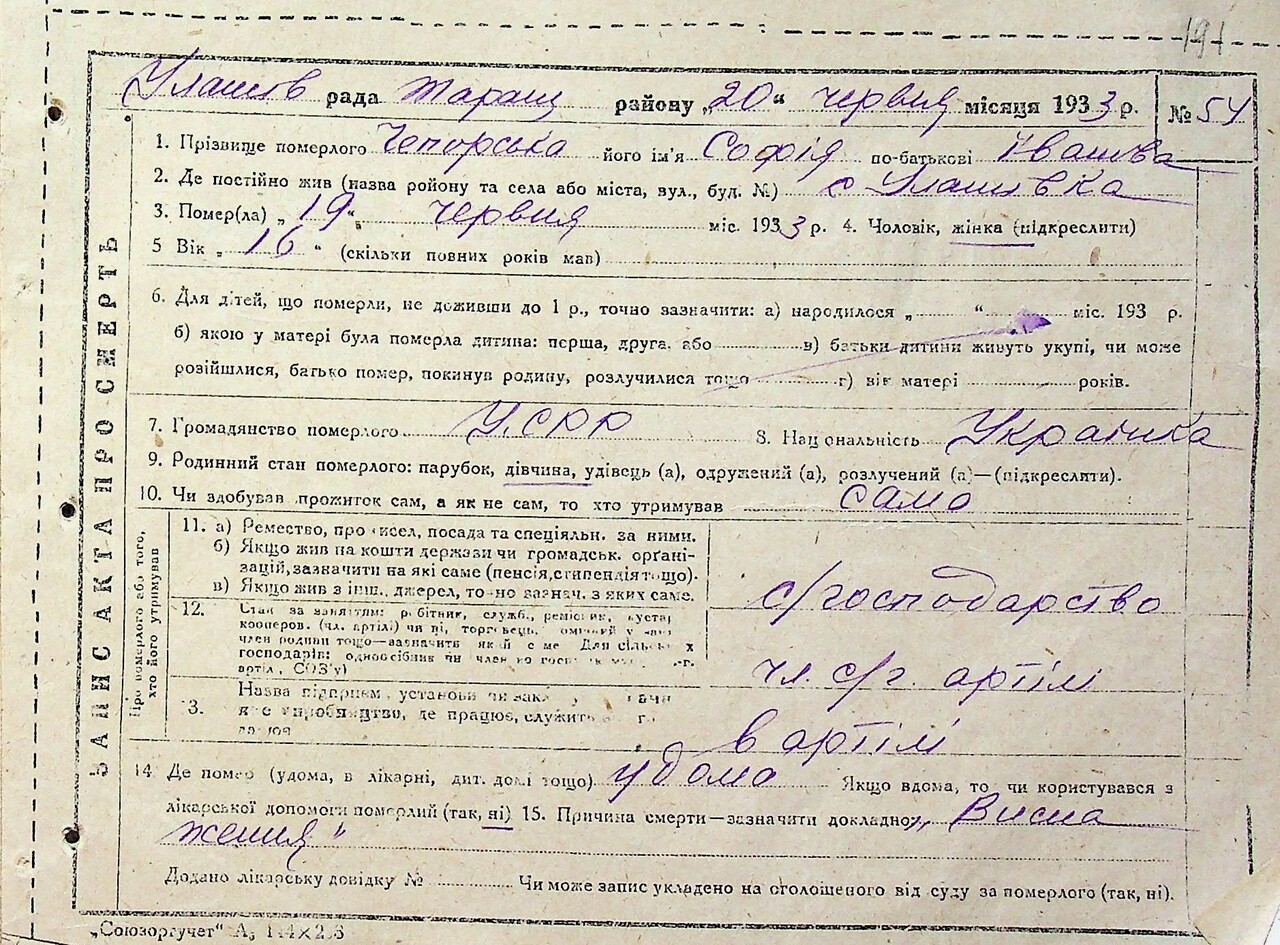 191
Улашів рада Таращ району „20“ червня місяця 1933 р. № 54
1. Прізвище померлого Чепорська його ім'я Софія по-батькові Іванова
2. Де постійно жив (назва району та села або міста, вул., буд. №) с Улашівка
3. Помер(ла) „19“ червня міс. 1933 р. 4. Чоловік, жінка (підкреслити)
5 Вік „16“ (скільки повних років мав)
6. Для дітей, що померли, не доживши до 1 р., точно зазначити: а) народилося „ “ міс. 193 р.
б) якою у матері була померла дитина: перша, друга, або в) батьки дитини живуть укупі, чи може
розійшлися, батько помер, покинув родину, розлучилися тощо г) вік матері років.
7. Громадянство померлого УСРР 8. Національність Українка
9. Родинний стан померлого: парубок, дівчина, удівець (а), одружений (а), розлучений (а)—(підкреслити).
10. Чи здобував прожиток сам, а як не сам, то хто утримував сама
ЗАПИС АКТА ПРО СМЕРТЬ
Про померлого або того,
хто його утримував
11. а) Ремество, промисел, посада та спеціяльн. за ними.
б) Якщо жив на кошти держави чи громадськ. орґані-
зацій, зазначити на які саме (пенсія, стипендія тощо).
в) Якщо жив з інш. джерел, точно зазнач. з яких саме.
с/господарство
12. Стан за заняттям: робітник, служб., ремісник, кустар
кооперов. (чл. артілі) чи ні, торговець,
член родини тощо—зазначить який саме Для сільських
господарів: одноосібник чи член
артіл, СОЗ'у)
чл. с/г. артілі
Назва підприєм, установи чи
13. виробництво, де працює, служить
в артілі
14. Де помер (удома, в лікарні, дит. домі тощо) удома Якщо вдома, то чи користувався з
лікарської допомоги померлий (так, ні) 15. Причина смерти—зазначити докладно „Висна
ження“
Додано лікарську довідку № Чи може запис укладено на оголошеного від суду за померлого (так, ні).
„Союзоргучет“